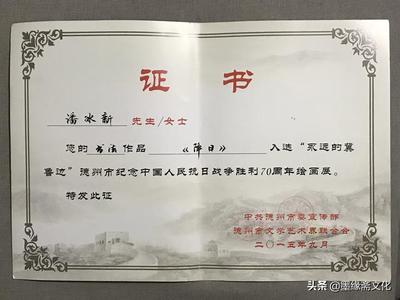 证 书
潘冰新 先生/女士
您的 书法 作品 《降日》 入选“永远的冀
鲁边”德州市纪念中国人民抗日战争胜利70周年绘画展。
特发此证
中共德州市委宣传部
德州市文学艺术界联合会
二〇一五年九月
头条@墨缘斋文化